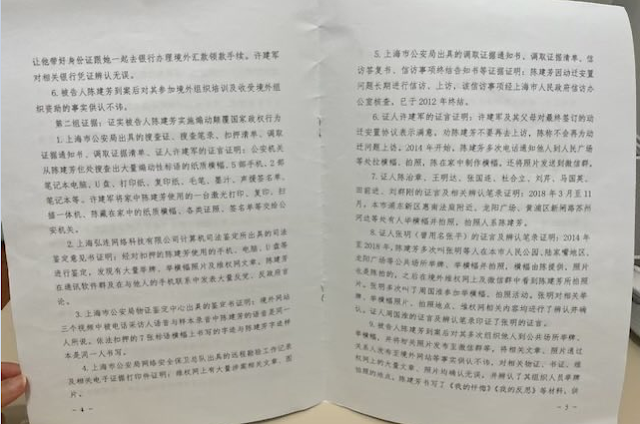 让他带好身份证跟她一起去银行办理境外汇款领款手续。许建军
对相关银行凭证辨认无误。
6.被告人陈建芳到案后对其参加境外组织培训及收受境外组
织资助的事实供认不讳。
第二组证据：证实被告人陈建芳实施煽动颠覆国家政权行为
1.上海市公安局出具的搜查证、搜查笔录、扣押清单、调取
证据通知书、调取证据清单、证人许建军的证言证明：公安机关
从陈建芳住处搜查出大量煽动性标语的纸质横幅，5部手机，2部
笔记本电脑，U盘、打印纸、复印纸、毛笔、墨汁、声援签名单、
笔记本等。许建军将家中陈建芳使用的一台激光打印、复印、扫
描一体机、隐藏在家中的纸质横幅、各类证照、签名单等交给公
安机关。
2.上海弘连网络科技有限公司计算机司法鉴定所出具的司法
鉴定意见书证明：经对扣押的陈建芳使用的手机、电脑、U盘等
进行鉴定，发现有大量举牌、举横幅照片及维权网文章。陈建芳
在通讯软件群及在与他人的手机联系中发表大量反党、反政府言
论。
3.上海市公安局物证鉴定中心出具的鉴定书证明：境外网站
三个视频中被电话采访人语音与样本录音中陈建芳的语音是同一
人所说。依法扣押的7张标语横幅上书写的字迹与陈建芳字迹样
本是同一人书写。
4.上海市公安局网络安全保卫总队出具的远程勘验工作记录
及相关电子证据打印件证明：维权网上有大量涉案相关文章、图
片。
- 4 -
5.上海市公安局出具的调取证据通知书、调取证据清单、信
访答复书、信访事项终结告知书等证据证明：陈建芳因动迁安置
问题长期进行信访、上访，该信访事项经上海市人民政府信访办
公室核查，已于2012年终结。
6.证人许建军的证言证明：许建军及其父母对最终签订的动
迁安置协议表示满意，劝陈建芳不要再去上访，陈称不会再为动
迁问题上访。2014年开始，陈建芳多次电话通知他人到人民广场
等处拉横幅、拍照，陈在家中制作横幅，还将照片发送到微信群。
7.证人陈治章、王明达、张国连、杜合立、刘芹、马国英、
田蔚进、刘群附的证言及相关辨认笔录证明：2018年3月至11
月，本市浦东新区惠南法庭附近、龙阳广场、黄浦区新闸路苏州
河边等处有人举横幅并拍照，拍照人系陈建芳。
8.证人张明（曾用名张平）的证言及辨认笔录证明：2014年
至2018年，陈建芳多次叫张明等人在本市人民公园、陆家嘴地区、
龙阳广场等公共场所举牌、举横幅并拍照，横幅由陈提供，照片
也是陈拍的，之后在境外维权网上及微信群中看到陈建芳所拍照
片。张明多次叫了周国淮参加举横幅、拍照活动。张明对相关举
牌、举横幅照片、拍照地点、维权网相关内容均进行了辨认并确
认。证人周国淮的证言及辨认笔录印证了张明的证言。
9.被告人陈建芳到案后对其多次组织他人到公共场所举牌、
举横幅，并将相关照片发布至微信群等，将相关文章、照片通过
关系人发布至境外网站等事实供认不讳。对相关物证、书证、维
权网上的大量文章、照片均确认无误，并辨认了其组织人员举牌
拍照的地点。陈建芳书写了《我的忏悔》《我的反思》等材料，供
- 5 -